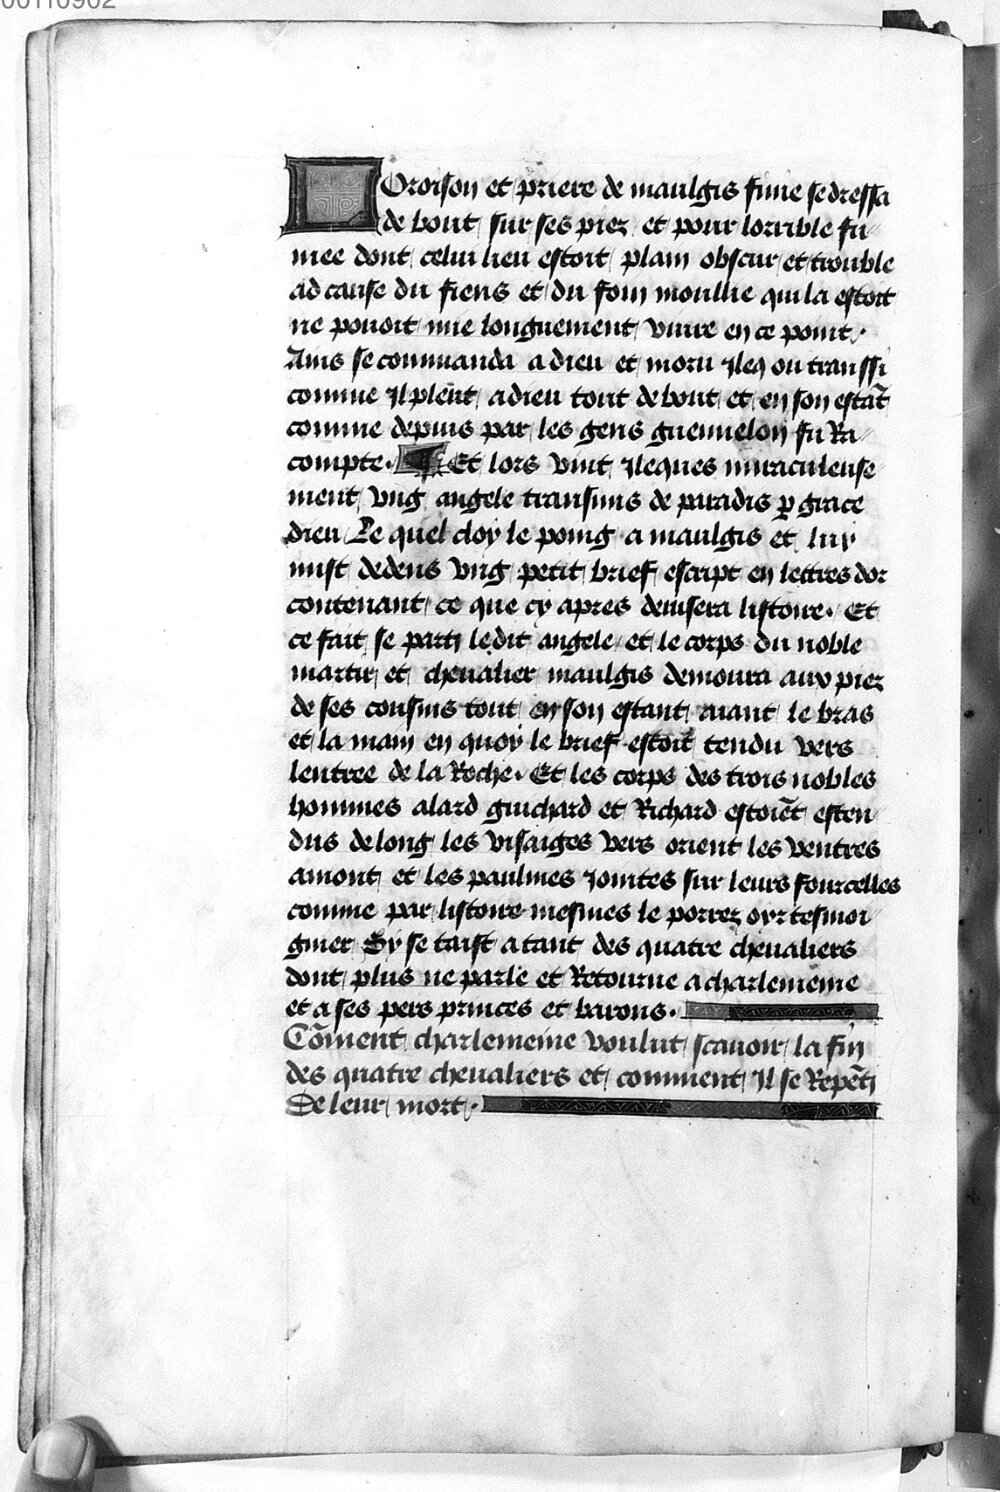 00110902
L Oroison et priere de maulgis finie se dressa
de bout sur ses piez et pour lorrible fu
mee dont celui lieu estoit plain obscur et trouble
ad cause du fiens et du foin moullie qui la estoit
ne pouoit mie longuement viure en ce point.
Ains se commanda a dieu et moru Ileq ou transsi
comme Il pleut a dieu tout de bout et en son estāt
comme depuis par les gens guennelon fu Ra
compte. ¶ Et lors vint Ilecques miraculeuse
ment vng angele transmis de paradis ꝑ grace
dieu Le quel cloy le poing a maulgis et luy
mist dedens vng petit brief escript en lettres dor
contenant ce que cy apres deuisera listoire. Et
ce fait se parti ledit angele et le corps du noble
martir et cheualier maulgis demoura aux piez
de ses cousins tout en son estant aiant le bras
et la main en quoy le brief estoit tendu vers
lentree de la Roche. Et les corps des trois nobles
hommes alard guichard et Richard estoiēt esten
dus de long les visaiges vers orient les ventres
amont et les paulmes Jointes sur leurs fourcelles
comme par listoire mesmes le porrez oyr tesmoi
gnier Sy se taist a tant des quatre cheualiers
dont plus ne parle et Retourne a charlemeine
et a ses pers princes et barons.
Cōment charlemeine voulut scauoir la fin
des quatre cheualiers et comment Il se Repēti
De leur mort.